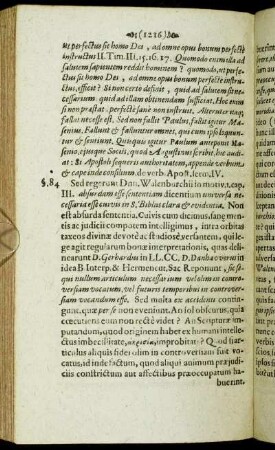 (1216)
ut perfectus sit homo Dei, ad omne opus bonum perfectè
instructus II. Tim. III. 15. 16. 17. Quomodo enim illa ad
salutem sapientem reddit hominem? quomodo, ut perfec-
tus sit homo Dei, ad omne opus bonum perfectè instru-
ctus, efficit? Si non certo definit, quid ad salutem sit ne-
cessarium quid ad illam obtinendam sufficiat. Hoc enim
si non praestat, illa efficere nequit. Alterutrum ergo fal-
sum esse necesse est. Sed non fallit Paulus, fallit ergo Ma-
senius. Fallunt & falluntur omnes, qui cum ipso loquun-
tur & sentiunt. Quisquis igitur Paulum antepones Ma-
senio, ejusque Sociis, quod Augustinus scribsit, hoc audi-
at: Si Apostoli sequeris auctoritatem, appende verbum,
& cape inde consilium. de verb. Apost. serm. IV.
§. 84 Sed regerunt Dnn. Walenburzii in motivo, cap.
III. absurdam esse sententiam dicentium universa ne-
cessaria esse cuivis in S. Bibliis clara & evidentia. Non
est absurda sententia. Cuivis cum dicimus, sanæ men-
tis ac judicii compotem intelligimus, intra orbitas
taxeos divinæ devotè ac studiosè versantem, qui le-
ge agit regularum bonæ interpretationis, quas deli-
nearunt D. Gerhardus in LL. CC. D. Danhavverus in
idea B. Interp. & Hermenevt. Sac. Reponunt, sic se-
qui nullum articulum necessarium velsolim in contro-
versiam vocatum, vel futuris temporibus in controver-
siam vocandum esse. Sed multa ex accidenti contin-
gunt, quæ per se non eveniunt. An sol obscurus, quia
cæcutiens cum non rectè videt? An Scripturæ im-
putandum, quod originem habet ex humani intellec-
tus imbecillitate, improbitate? Quod si ar-
ticulus aliquis fidei olim in controversiam fuit vo-
catus, id inde factum, quod aliqui animum præjudi-
ciis constrictum aut affectibus præoccuparum ha-
buerint.